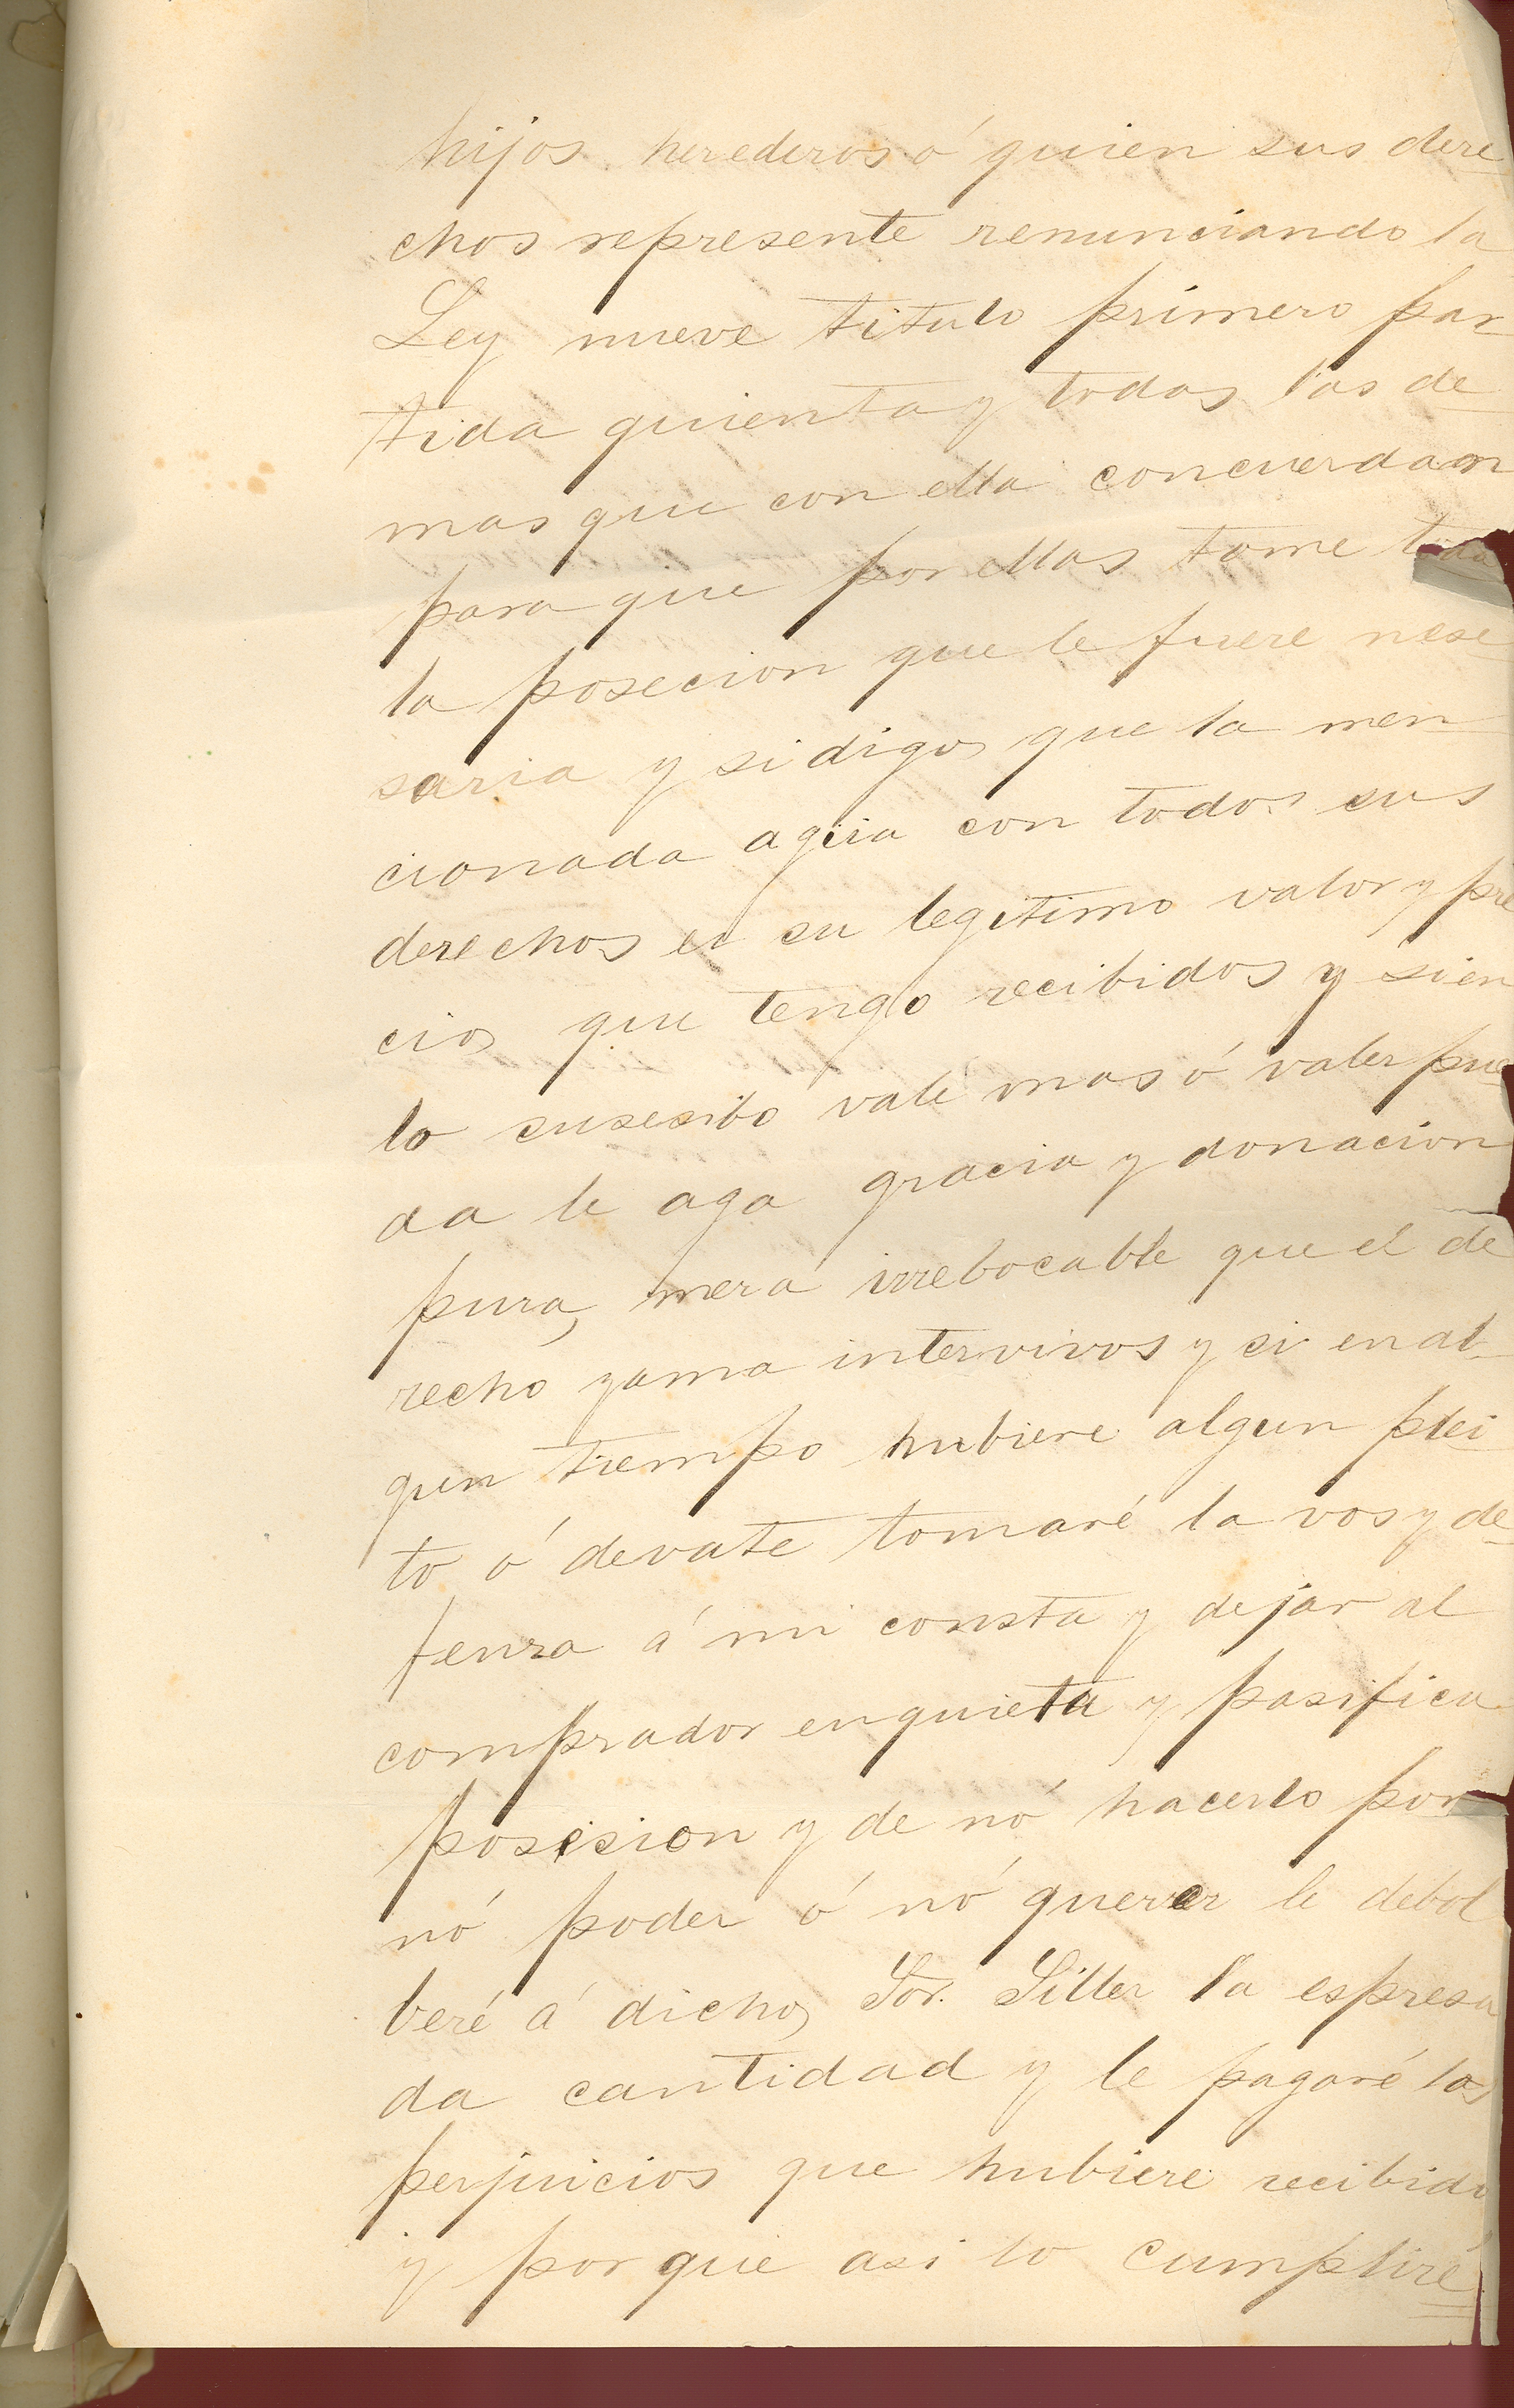 hijos herederos ó quien sus dere
chos represente renunciando la
Ley nueve titulo primero par
tida quienta y todas las de
mas que con ella concuerdan
para que por ellas tome toda
la posecion que le fuere nese
saria y si digo que la men
cionada agua con todos sus
derechos es su legitimo valor y pre
cio que tengo recibidos y sien
lo susecibo vale mas ó valer pue
da le aga gracia y donacion
pura, mera irrebocable que el de
recho yama intervivos y si en al
gun tiempo hubiere algun plei
to ó devate tomaré la vos y de
fenza á mi consta y dejar al
comprador en quieta y pasifica
posesion y de nó hacerlo por
nó poder ó nó querer le debol
beré á dicho Sor. Siller la espresa
da cantidad y le pagaré los
perjuicios que hubiere recibido
y por que asi lo cumpliré